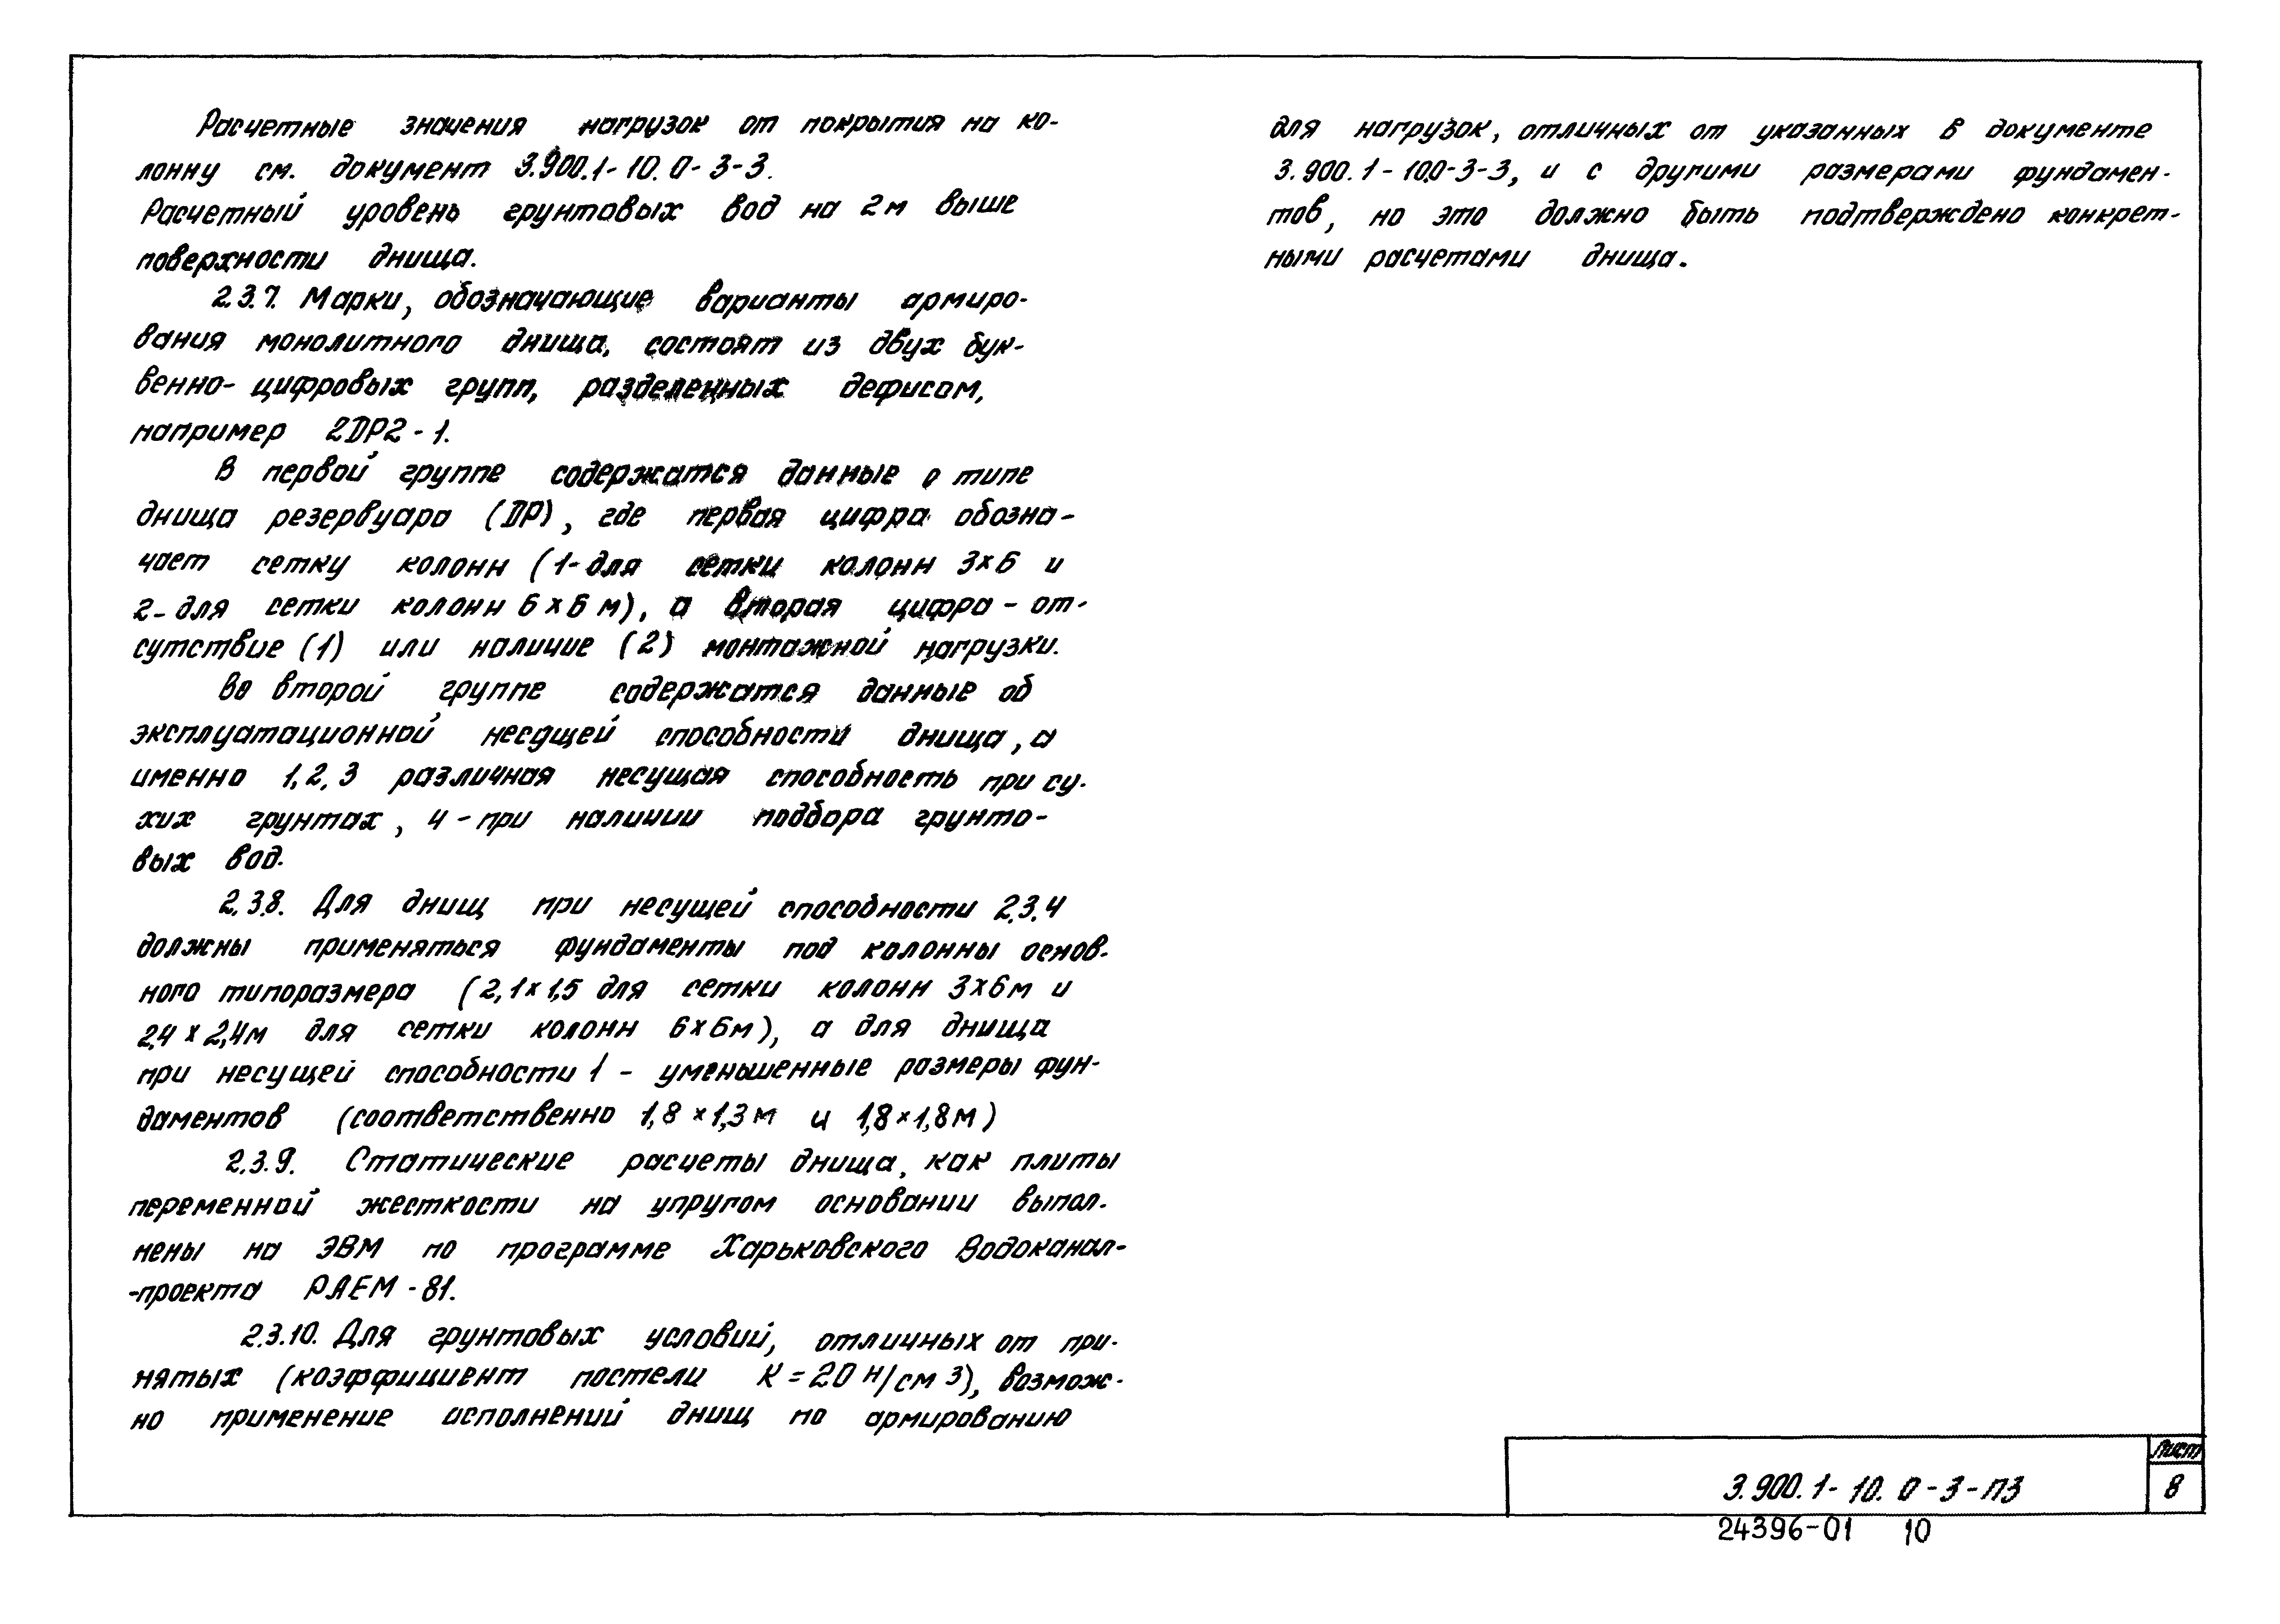 Расчетные значения нагрузок от покрытия на ко-
лонну см. документ 3.900.1-10.0-3-3.
Расчетный уровень грунтовых вод на 2м выше
поверхности днища.
2.3.7. Марки, обозначающие варианты армиро-
вания монолитного днища, состоят из двух бук-
венно-цифровых групп, разделенных дефисом,
например 2DP2-1.
В первой группе содержатся данные о типе
днища резервуара (DP), где первая цифра обозна-
чает сетку колонн (1-для сетки колонн 3×6 и
2-для сетки колонн 6×6 м), а вторая цифра - от-
сутствие (1) или наличие (2) монтажной нагрузки.
Во второй группе содержатся данные об
эксплуатационной несущей способности днища, а
именно 1, 2, 3 различная несущая способность при су-
хих грунтах, 4 - при наличии подбора грунто-
вых вод.
2.3.8. Для днищ при несущей способности 2.3.4
должны применяться фундаменты под колонны основ-
ного типоразмера (2,1×1,5 для сетки колонн 3×6м и
2,4×2,4м для сетки колонн 6×6м), а для днища
при несущей способности 1 - уменьшенные размеры фун-
даментов (соответственно 1,8×1,3м и 1,8×1,8м)
2.3.9. Статические расчеты днища, как плиты
переменной жесткости на упругом основании выпол-
нены на ЭВМ по программе Харьковского Водоканал-
-проекта РАЕМ-81.
2.3.10. Для грунтовых условий, отличных от при-
нятых (коэффициент постели К=20 н/см3), возмож-
но применение исполнений днищ по армированию
для нагрузок, отличных от указанных в документе
3.900.1-10.0-3-3, и с другими размерами фундамен-
тов, но это должно быть подтверждено конкрет-
ными расчетами днища.
3.900.1-10.0-3-ПЗ
Лист
8
24396-01 10